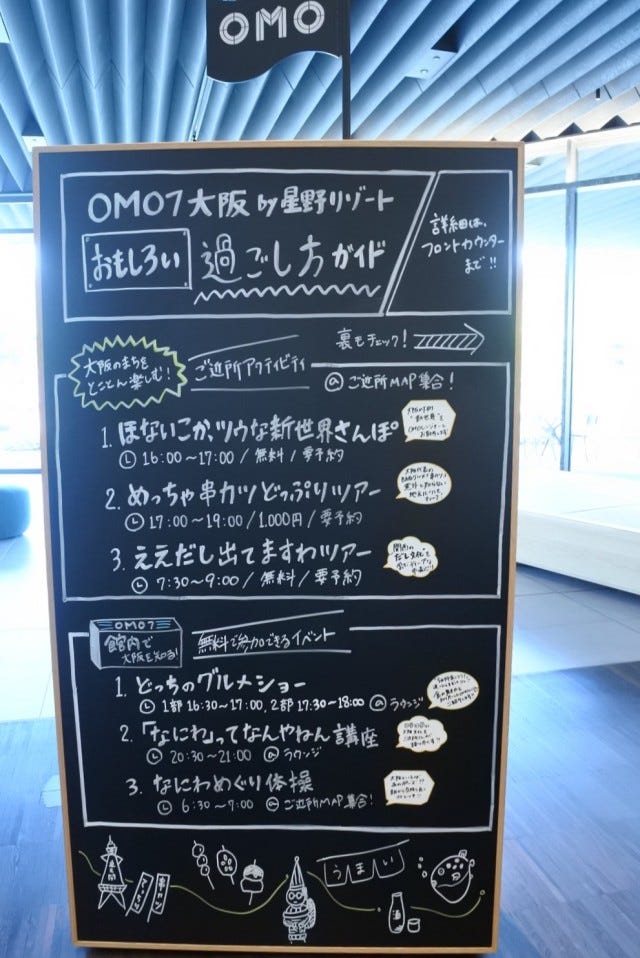 OMO
OMO7大阪 by 星野リゾート
おもしろい 過ごし方ガイド
詳細は、
フロントカウンター
まで!!
裏もチェック!
大阪のまちを
とことん楽しむ!
ご近所アクティビティ
@ご近所MAP集合!
1. ほないこか、ツウな新世界さんぽ
16:00~17:00/無料/要予約
2. めっちゃ串カツどっぷりツアー
17:00~19:00/1,000円/要予約
3. ええだし出てますわツアー
7:30~9:00/無料/要予約
OMO7
館内で
大阪を知る!
無料で参加できるイベント
1. どっちのグルメショー
1部 16:30~17:00, 2部 17:30~18:00 @ラウンジ
2.「なにわ」ってなんやねん講座
20:30~21:00 @ラウンジ
3. なにわめぐり体操
6:30~7:00 @ご近所MAP集合!
串カツ
うまい
酒